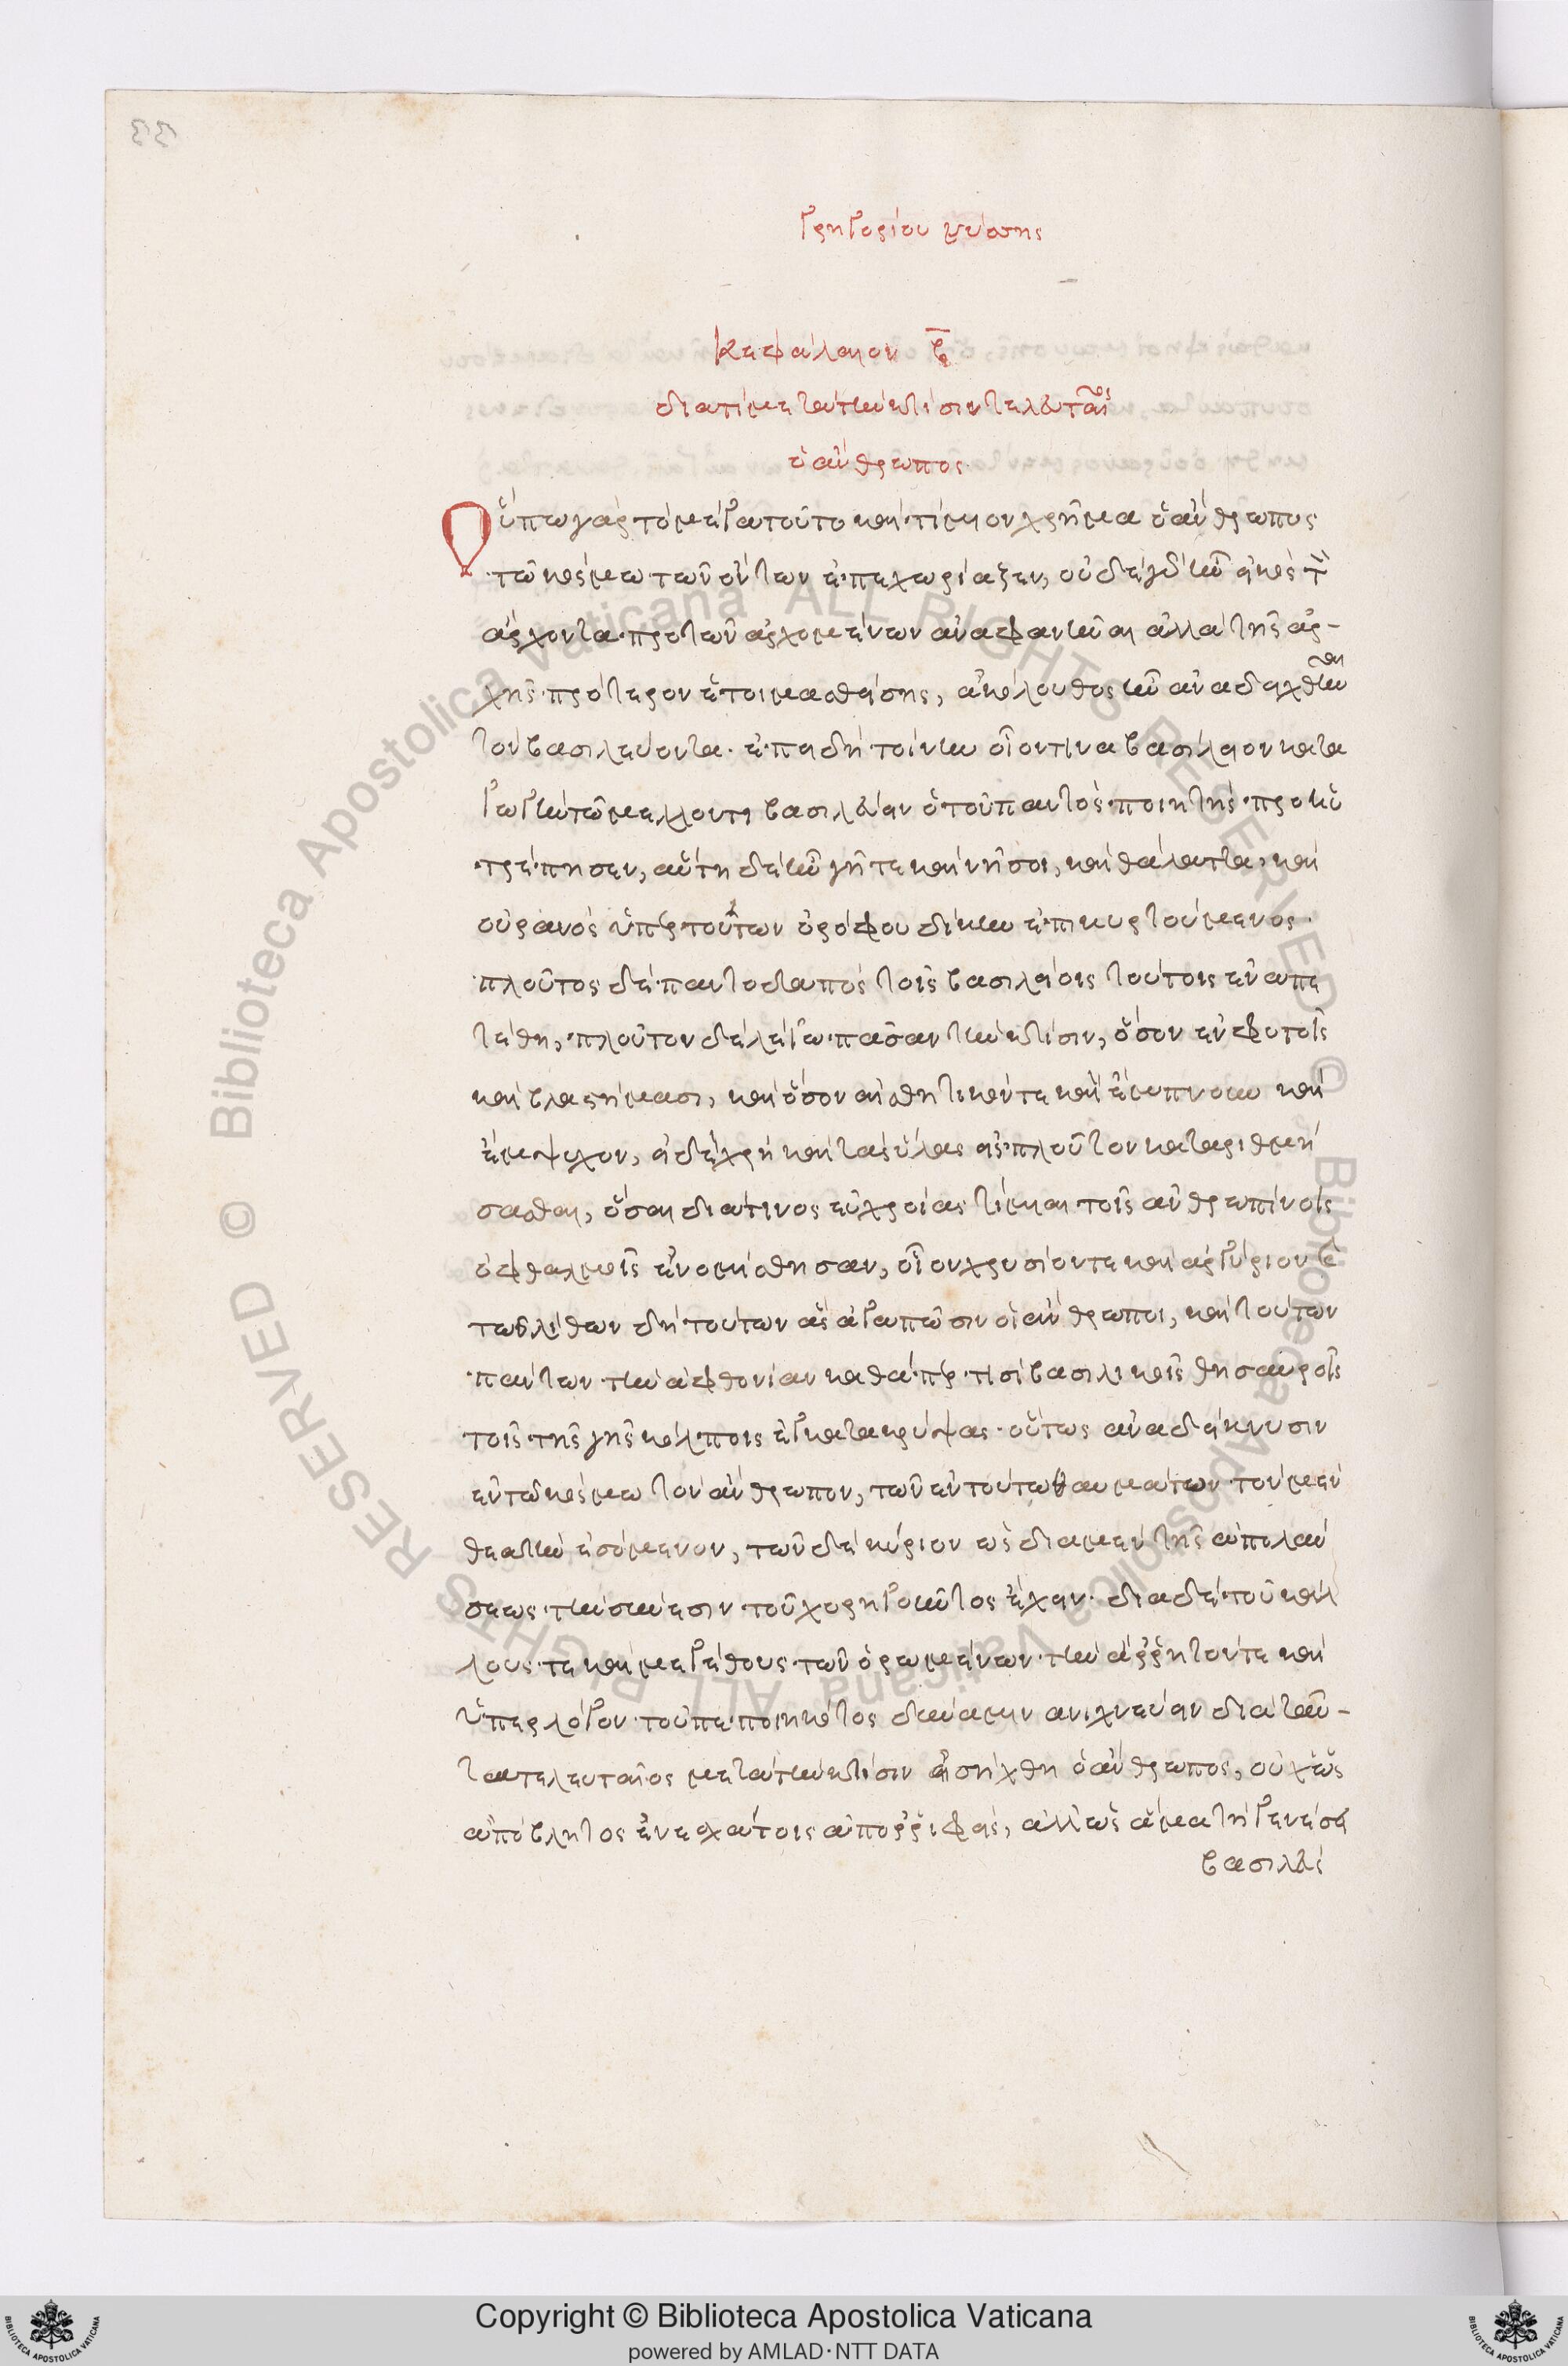 Γρηγορίου Νύσσης
Κεφάλαιον β
διατί μετὰ τὴν κτίσιν τελευταῖ(ος)
ὁ ἄνθρωπος
Οὔπω γὰρ τὸ μέγα τοῦτο καὶ τίμιον χρῆμα ὁ ἄνθρωπος
τῶ κόσμω τῶν ὄντων ἐπεχωρίαζεν, οὐδὲ γὰρ ἦν εἰκὸς τὸν
ἄρχοντα πρὸ τῶν ἀρχομένων ἀναφανῆναι ἀλλὰ τῆς ἀρ-
χῆς πρότερον ἑτοιμασθείσης, ἀκόλουθος ἦν ἀναδειχθῆναι
τὸν βασιλεύοντα. ἐπειδὴ τοίνυν οἷόν τινα βασίλειον κατα
γωγὴν τῶ μέλλοντι βασιλεύειν ὁ τοῦ παντὸς ποιητὴς προηυ
τρέπησεν, αὕτη δὲ ἦν γῆ τε καὶ νῆσοι, καὶ θάλαττα, καὶ
οὐρανὸς ὑπὲρ τούτων ὀρόφου δίκην ἐπικυρτούμενος.
πλοῦτος δὲ παντοδαπὸς τοῖς βασιλείοις τούτοις ἐναπε
τέθη, πλοῦτον δὲ λέγω πᾶσαν τὴν κτίσιν, ὅσον ἐν φυτοῖς
καὶ βλαστήμασι, καὶ ὅσον αἰσθητικόν τε καὶ ἔμπνοον καὶ
ἔμψυχον, εἰ δὲ χρὴ καὶ τὰς ὕλας εἰς πλοῦτον καταριθμή
σασθαι, ὅσαι διά τινος εὐχροίας τίμιαι τοῖς ἀνθρωπίνοις
ὀφθαλμοῖς ἐνομίσθησαν, οἷον χρυσίον τε καὶ ἀργύριον καὶ
τῶν λίθων δὴ τούτων ἃς ἀγαπῶσιν οἱ ἄνθρωποι, καὶ τούτων
πάντων τὴν ἀφθονίαν καθάπερ τισὶ βασιλικοῖς θησαυροῖς
τοῖς τῆς γῆς κόλποις ἐγκατακρύψας. οὕτως ἀναδείκνυσιν
ἐν τῶ κόσμω τὸν ἄνθρωπον, τῶν ἐν τούτω θαυμάτων τὸν μὲν
θεατὴν ἐσόμενον, τῶν δὲ κύριον ὡς διὰ μὲν τῆς ἀπολαύ
σεως τὴν σύνεσιν τοῦ χορηγοῦντος ἔχειν. διὰ δὲ τοῦ κάλ
λους τε καὶ μεγέθους τῶν ὁρωμένων τὴν ἄῤῥητόν τε καὶ
ὑπὲρ λόγον τοῦ πεποιηκότος δύναμιν ἀνιχνεύειν διὰ ταῦ-
τα τελευταῖος μετὰ τὴν κτίσιν εἰσήχθη ὁ ἄνθρωπος, οὐχ ὡς
ἀπόβλητος ἐν ἐσχάτοις ἀποῤῥιφείς, ἀλλ' ὡς ἅμα τῇ γενέσει
βασιλεὺς